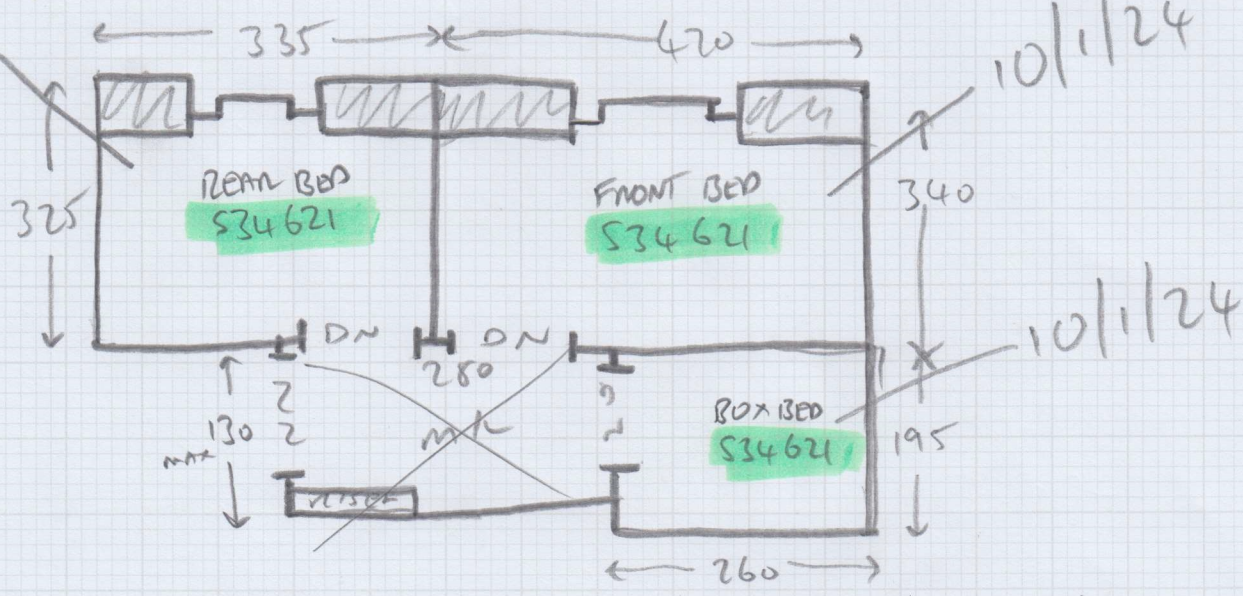 335
420
10/1/24
REAR BED
534621
FRONT BED
534621
325
340
10/1/24
DN
DN
280
130
MAX
BOX BED
534621
195
260